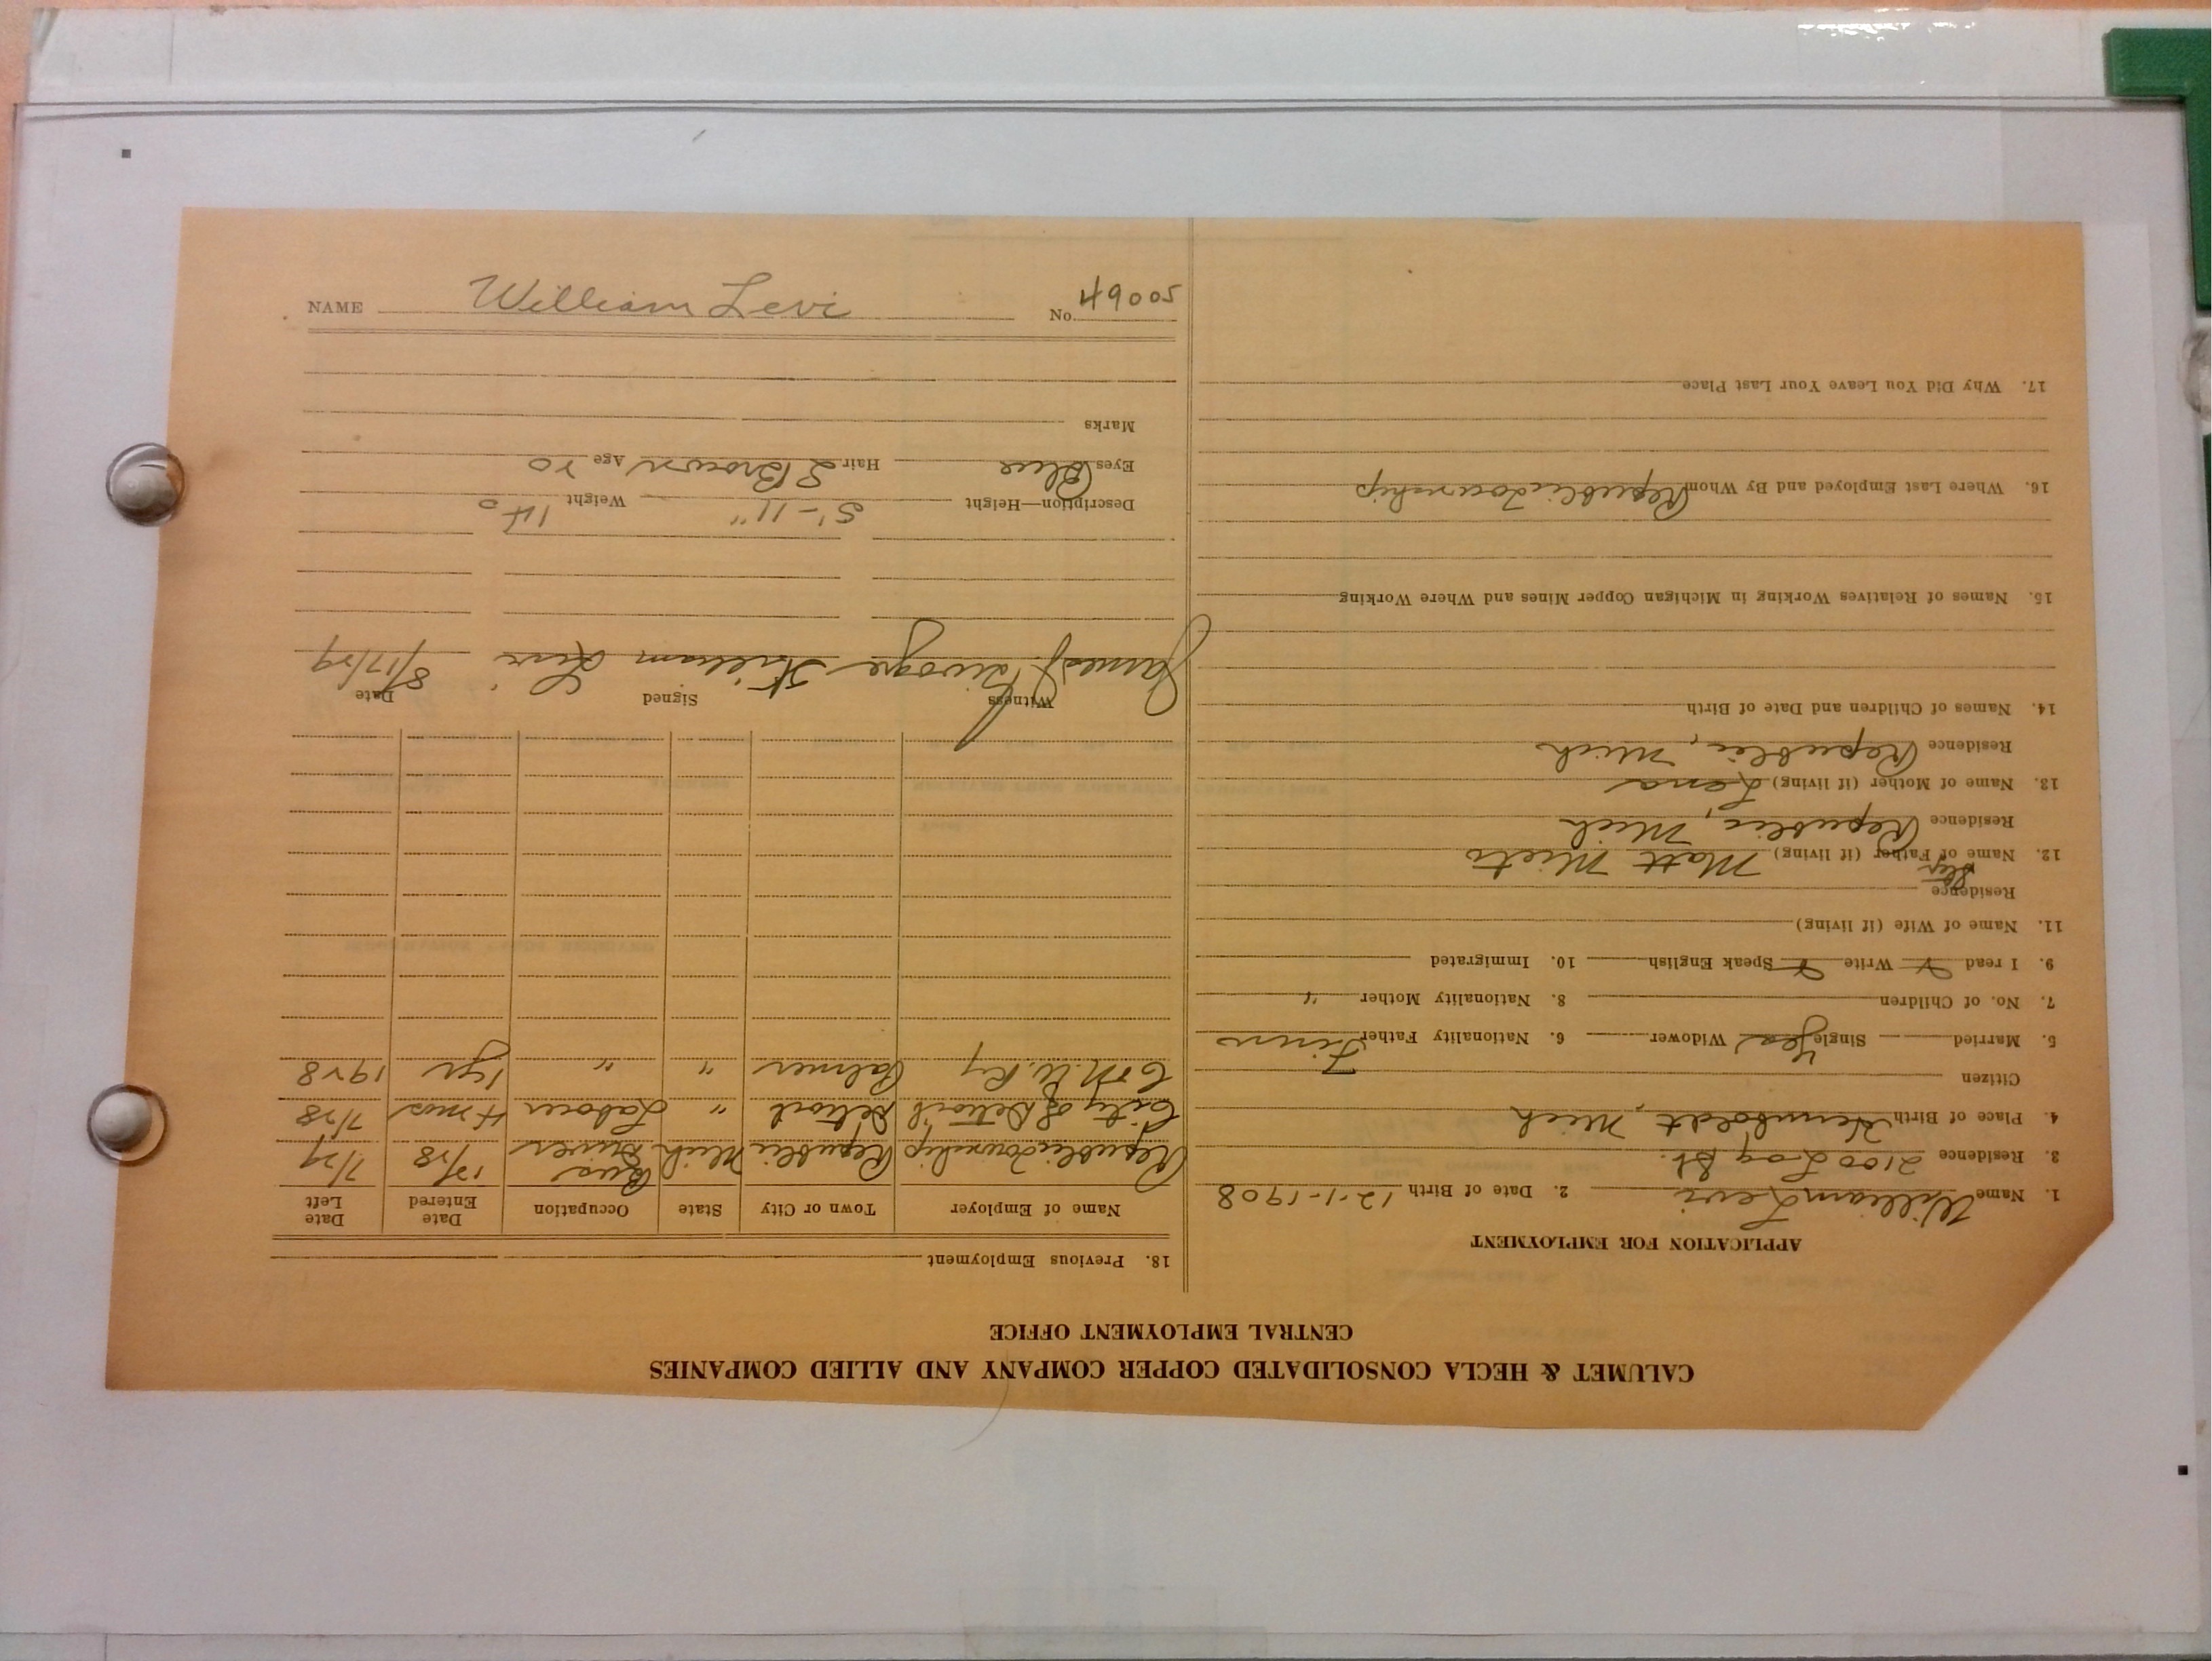 NAME William Levi No. 49005
CALUMET & HECLA CONSOLIDATED COPPER COMPANY AND ALLIED COMPANIES
CENTRAL EMPLOYMENT OFFICE
APPLICATION FOR EMPLOYMENT
1. Name William Levi 2. Date of Birth 12-1-1908
3. Residence 2100 Log St.
4. Place of Birth Humboldt, Mich
Citizen
5. Married Single Yes Widower 6. Nationality Father Finn
7. No. of Children 8. Nationality Mother "
9. I read Write Speak English 10. Immigrated
11. Name of Wife (if living)
Residence
Step
12. Name of Father (if living) Matt
Residence Republic, Mich
13. Name of Mother (if living) Lena
Residence Republic, Mich
14. Names of Children and Date of Birth
15. Names of Relatives Working in Michigan Copper Mines and Where Working
16. Where Last Employed and By Whom Republic Township
17. Why Did You Leave Your Last Place
18. Previous Employment
Name of Employer Town or City State Occupation Date Entered Date Left
Republic Township Republic Mich Bus Driver 12/28 7/29
City of Detroit Detroit " Laborer 4 mos 7/28
C+N.W. Ry Palmer " " 1 yr 1928
Witness Signed Date
James William Levi 8/17/29
Description—Height 5'-11" Weight 140
Eyes Blue Hair L Brown Age 20
Marks